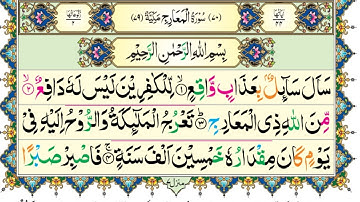 (٧٠) سُوْرَةُ الْمَعَارِجِ مَكِّيَّةٌ (٧٩)
بِسْمِ اللّٰهِ الرَّحْمٰنِ الرَّحِيْمِ
سَاَلَ سَآئِلٌۢ بِعَذَابٍ وَّاقِعٍ ۙ﴿۱﴾ لِّلْكٰفِرِيْنَ لَيْسَ لَهٗ دَافِعٌ ۙ﴿۲﴾
مِّنَ اللّٰهِ ذِي الْمَعَارِجِ ؕ﴿۳﴾ تَعْرُجُ الْمَلٰٓئِكَةُ وَالرُّوْحُ اِلَيْهِ فِيْ
يَوْمٍ كَانَ مِقْدَارُهٗ خَمْسِيْنَ اَلْفَ سَنَةٍ ۚ﴿۴﴾ فَاصْبِرْ صَبْرًا